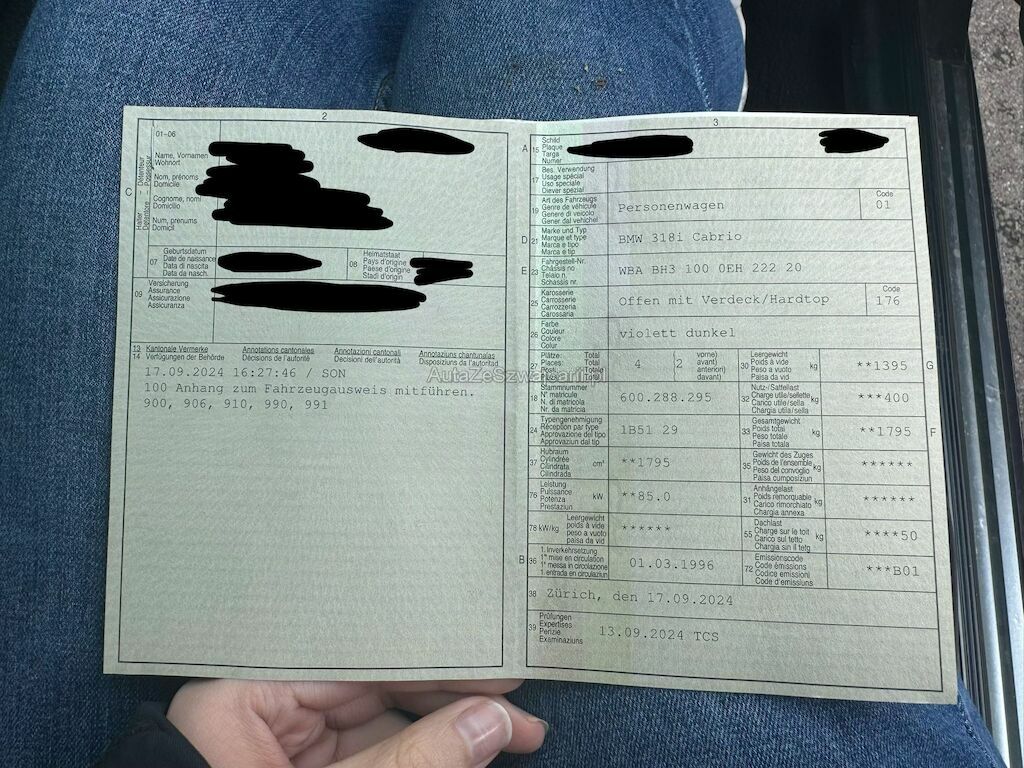 2
01-06
C
Halter – Détenteur
Detentore – Possessur
Name, Vornamen
Wohnort
Nom, prénoms
Domicile
Cognome, nomi
Domicilio
Num, prenums
Domicil
07
Geburtsdatum
Date de naissance
Data di nascita
Data da nasch.
08
Heimatstaat
Pays d'origine
Paese d'origine
Stadi d'origin
09
Versicherung
Assurance
Assicurazione
Assicuranza
13 Kantonale Vermerke Annotations cantonales Annotazioni cantonali Annotaziuns chantunalas
14 Verfügungen der Behörde Décisions de l'autorité Decisioni dell'autorità Disposiziuns da l'autoritad
17.09.2024 16:27:46 / SON
100 Anhang zum Fahrzeugausweis mitführen.
900, 906, 910, 990, 991
3
A 15
Schild
Plaque
Targa
Numer
17
Bes. Verwendung
Usage spécial
Uso speciale
Diever spezial
19
Art des Fahrzeugs
Genre de véhicule
Genere di veicolo
Gener dal vehichel
Personenwagen
Code
01
D 21
Marke und Typ
Marque et type
Marca e tipo
Marca e tip
BMW 318i Cabrio
E 23
Fahrgestell-Nr.
Châssis no
Telaio n.
Schassis nr.
WBA BH3 100 0EH 222 20
25
Karosserie
Carrosserie
Carrozzeria
Carossaria
Offen mit Verdeck/Hardtop
Code
176
26
Farbe
Couleur
Colore
Colur
violett dunkel
27
Plätze: Total
Places: Total
Posti: Totale
Total
4 (2
vorne)
avant)
anteriori)
davant)
30
Leergewicht
Poids à vide
Peso a vuoto
Paisa da vid
kg
**1395
G
18
Stammnummer
N° matricule
N. di matricola
Nr. da matricla
600.288.295
32
Nutz-/Sattellast
Charge utile/sellette
Carico utile/sella
Chargia utila/sella
kg
***400
24
Typengenehmigung
Réception par type
Approvazione del tipo
Approvaziun dal tip
1B51 29
33
Gesamtgewicht
Poids total
Peso totale
Paisa totala
kg
**1795
F
37
Hubraum
Cylindrée
Cilindrata
Cilindrada
cm³
**1795
35
Gewicht des Zuges
Poids de l'ensemble
Peso del convoglio
Paisa cumposiziun
kg
******
76
Leistung
Puissance
Potenza
Prestaziun
kW
**85.0
31
Anhängelast
Poids remorquable
Carico rimorchiato
Chargia annexa
kg
******
78 kW/kg
Leergewicht
poids à vide
peso a vuoto
paisa da vid
******
55
Dachlast
Charge sur le toit
Carico sul tetto
Chargia sin il tetg
kg
****50
B 36
1. Inverkehrsetzung
1re mise en circulation
1a messa in circolazione
1. entrada en circulaziun
01.03.1996
72
Emissionscode
Code émissions
Codice emissioni
Code d'emissiuns
***B01
38
Zürich, den 17.09.2024
39
Prüfungen
Expertises
Perizie
Examinaziuns
13.09.2024 TCS
AutaZeSzwajcarii.pl